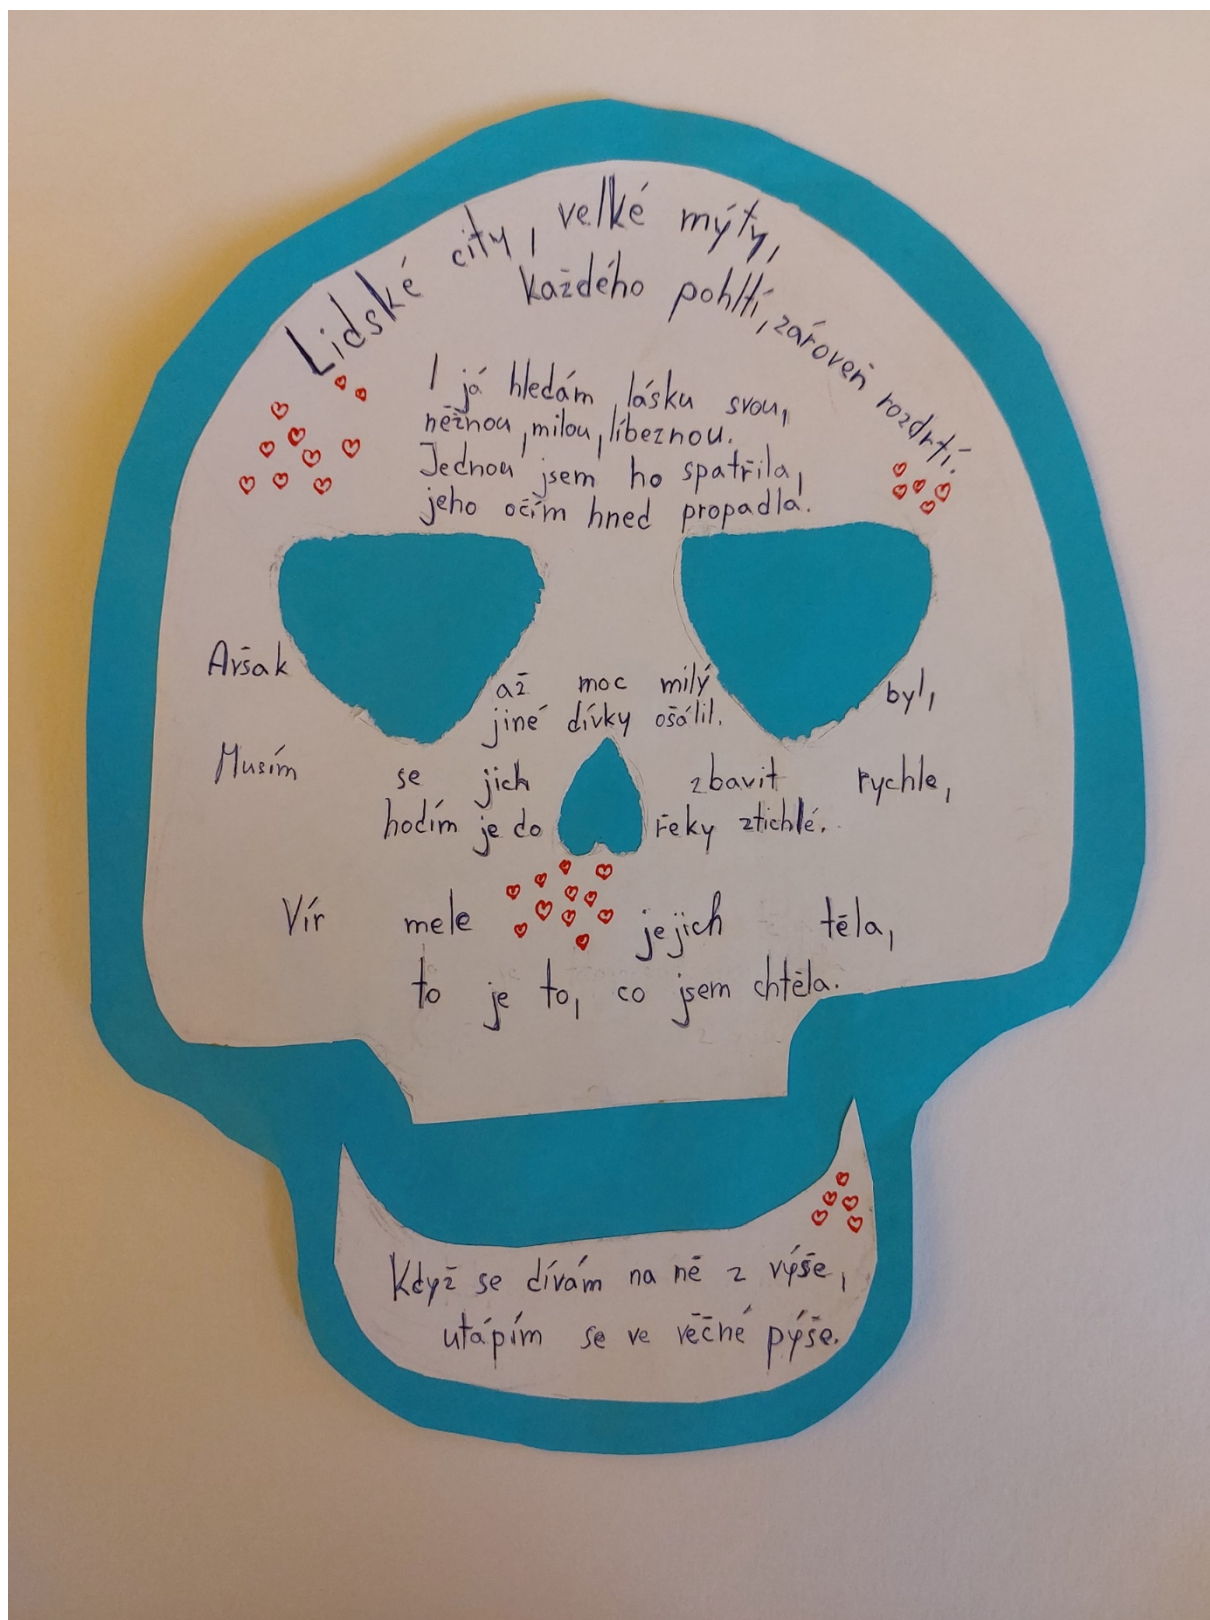 Lidské city, velké mýty,
každého pohltí, zároveň rozdrtí.
I já hledám lásku svou,
něžnou, milou, líbeznou.
Jednou jsem ho spatřila,
jeho očím hned propadla.
Avšak až moc milý byl,
jiné dívky ošálil.
Musím se jich zbavit rychle,
hodím je do řeky ztichlé.
Vír mele jejich těla,
to je to, co jsem chtěla.
Když se dívám na ně z výše,
utápím se ve věčné pýše.